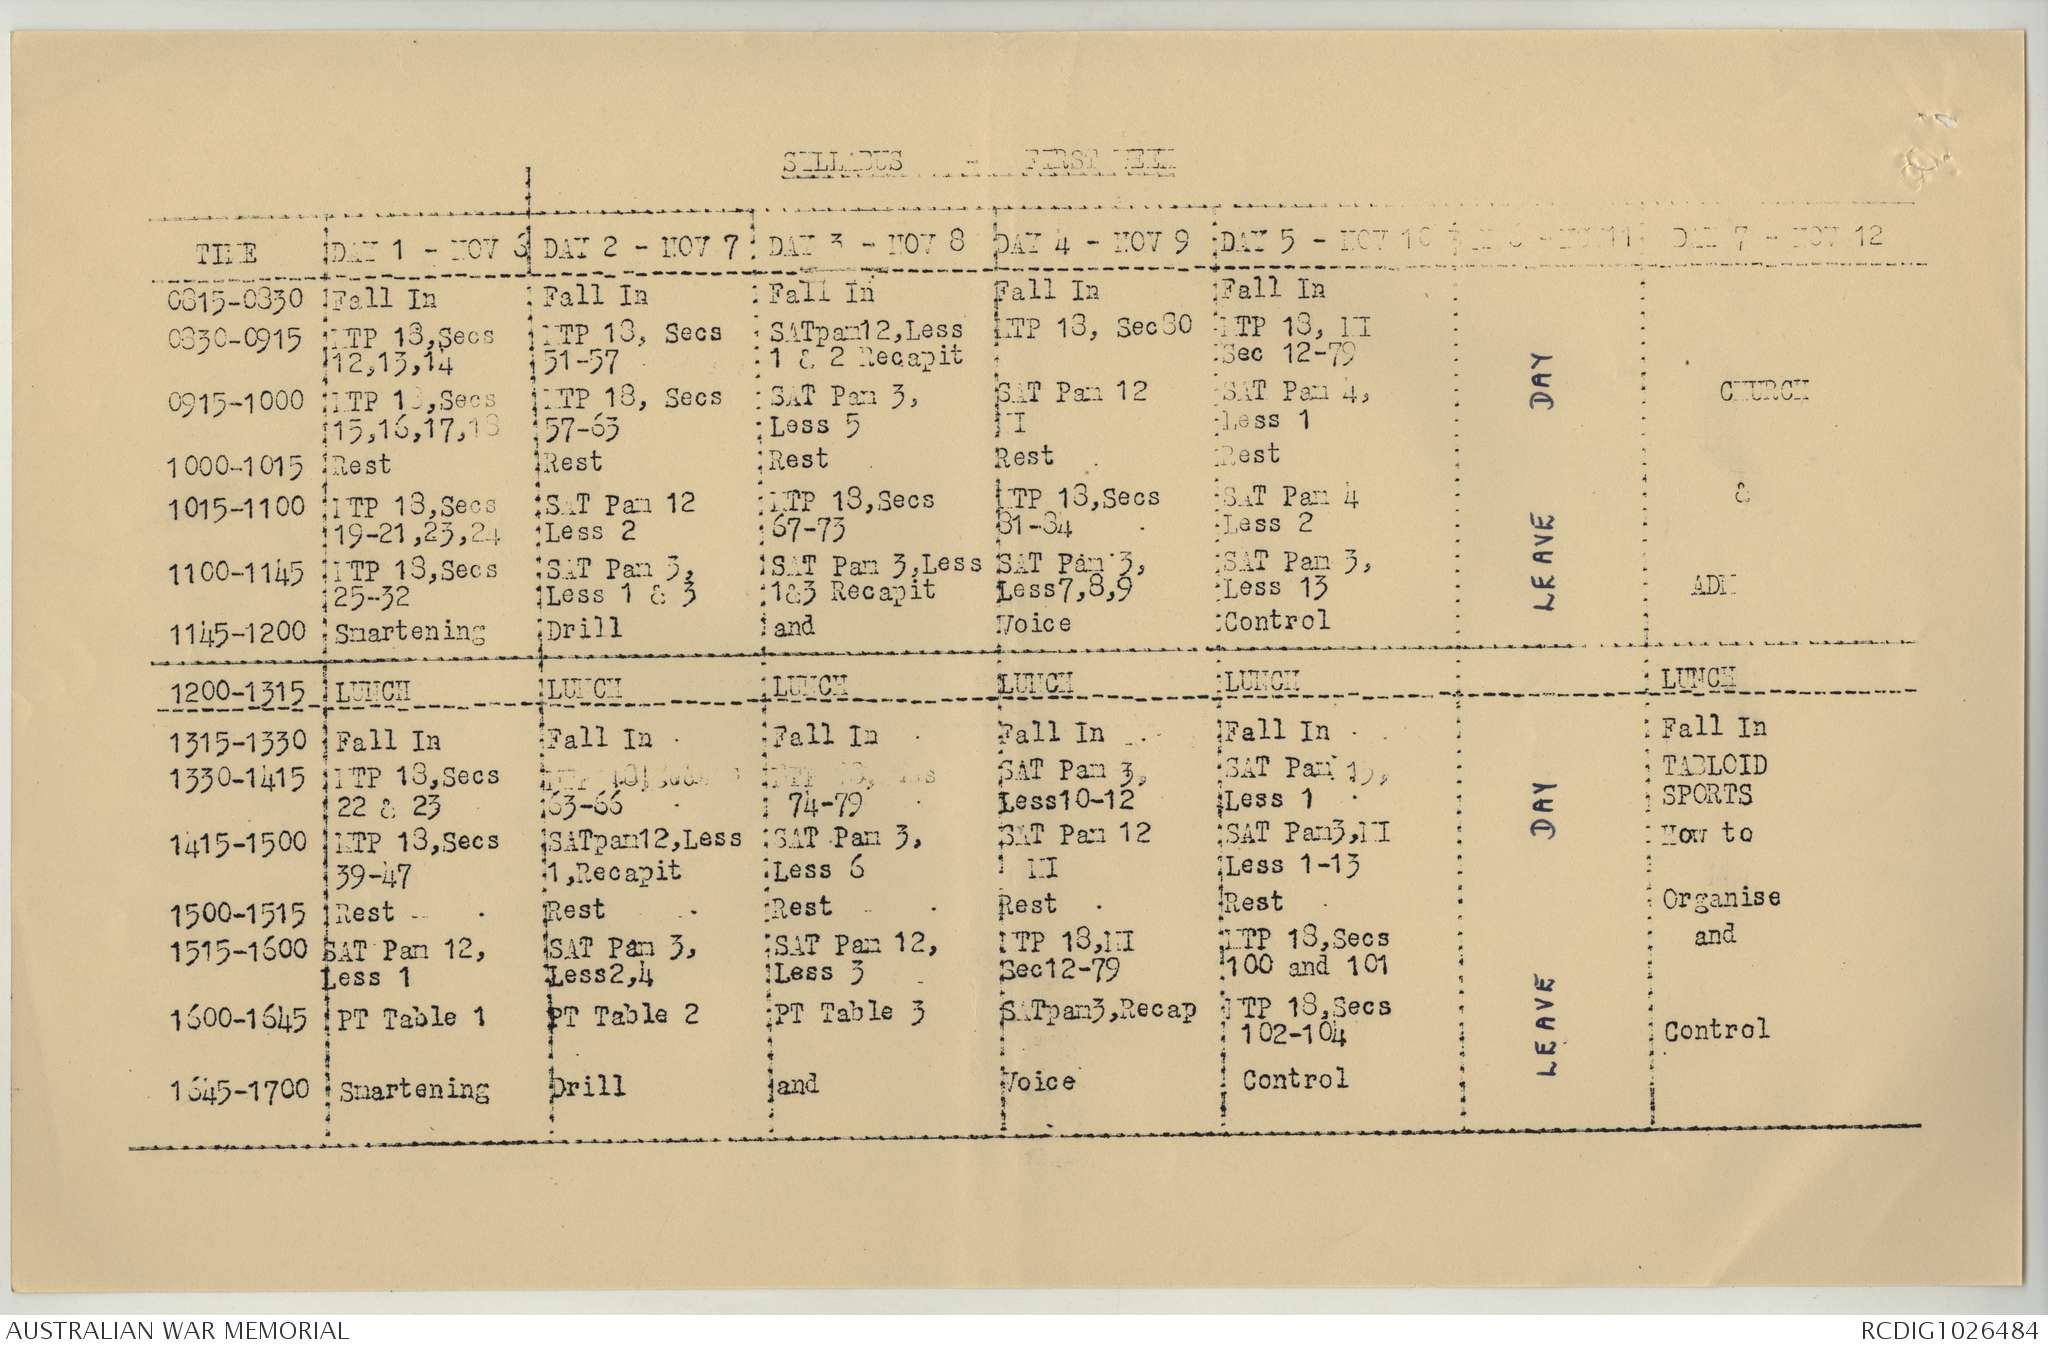 SYLLABUS - FIRST WEEK
TIME DAY 1 - NOV 6 DAY 2 - NOV 7 DAY 3 - NOV 8 DAY 4 - NOV 9 DAY 5 - NOV 10 DAY 6 - NOV 11 DAY 7 - NOV 12
0815-0830 Fall In Fall In Fall In Fall In Fall In
0830-0915 MTP 18,Secs MTP 18, Secs SATpam12,Less MTP 18, Sec80 MTP 18, MI
12,13,14 51-57 1 & 2 Recapit Sec 12-79
0915-1000 MTP 18,Secs MTP 18, Secs SAT Pam 3, SAT Pam 12 SAT Pam 4, CHURCH
15,16,17,18 57-63 Less 5 MI Less 1
1000-1015 Rest Rest Rest Rest Rest
1015-1100 MTP 18,Secs SAT Pam 12 MTP 18,Secs MTP 18,Secs SAT Pam 4 &
19-21,23,24 Less 2 67-73 81-84 Less 2
1100-1145 MTP 18,Secs SAT Pam 3, SAT Pam 3,Less SAT Pam 3, SAT Pam 3, ADM
25-32 Less 1 & 3 1&3 Recapit Less7,8,9 Less 13
1145-1200 Smartening Drill and Voice Control
LEAVE DAY
1200-1315 LUNCH LUNCH LUNCH LUNCH LUNCH LUNCH
1315-1330 Fall In Fall In Fall In Fall In Fall In Fall In
1330-1415 MTP 18,Secs MTP 18,Secs MTP 18,Secs SAT Pam 3, SAT Pam 13, TABLOID
22 & 23 63-66 74-79 Less10-12 Less 1 SPORTS
1415-1500 MTP 18,Secs SATpam12,Less SAT Pam 3, SAT Pam 12 SAT Pam3,MI How to
39-47 1,Recapit Less 6 MI Less 1-13
1500-1515 Rest Rest Rest Rest Rest Organise
1515-1600 SAT Pam 12, SAT Pam 3, SAT Pam 12, MTP 18,MI MTP 18,Secs and
Less 1 Less2,4 Less 3 Sec12-79 100 and 101
1600-1645 PT Table 1 PT Table 2 PT Table 3 SATpam3,Recap MTP 18,Secs
102-104 Control
1645-1700 Smartening Drill and Voice Control
LEAVE DAY
AUSTRALIAN WAR MEMORIAL RCDIG1026484